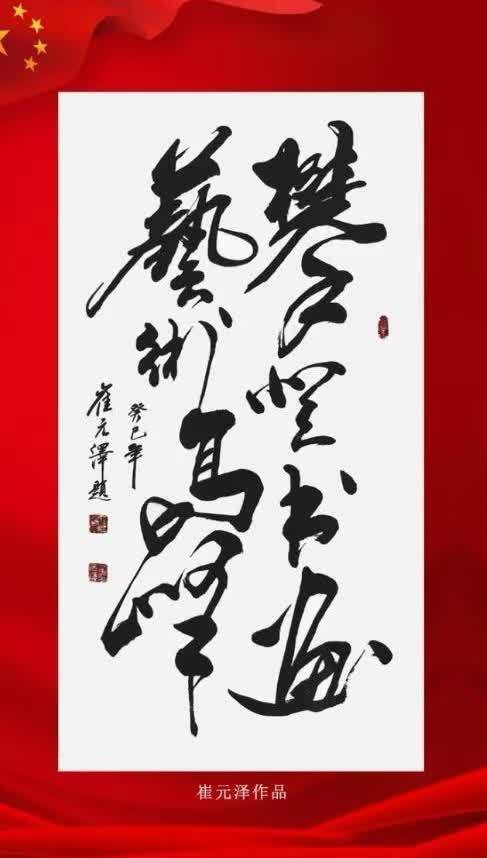 攀登书画
藝術高峰
癸巳年
崔元澤題
崔元泽作品